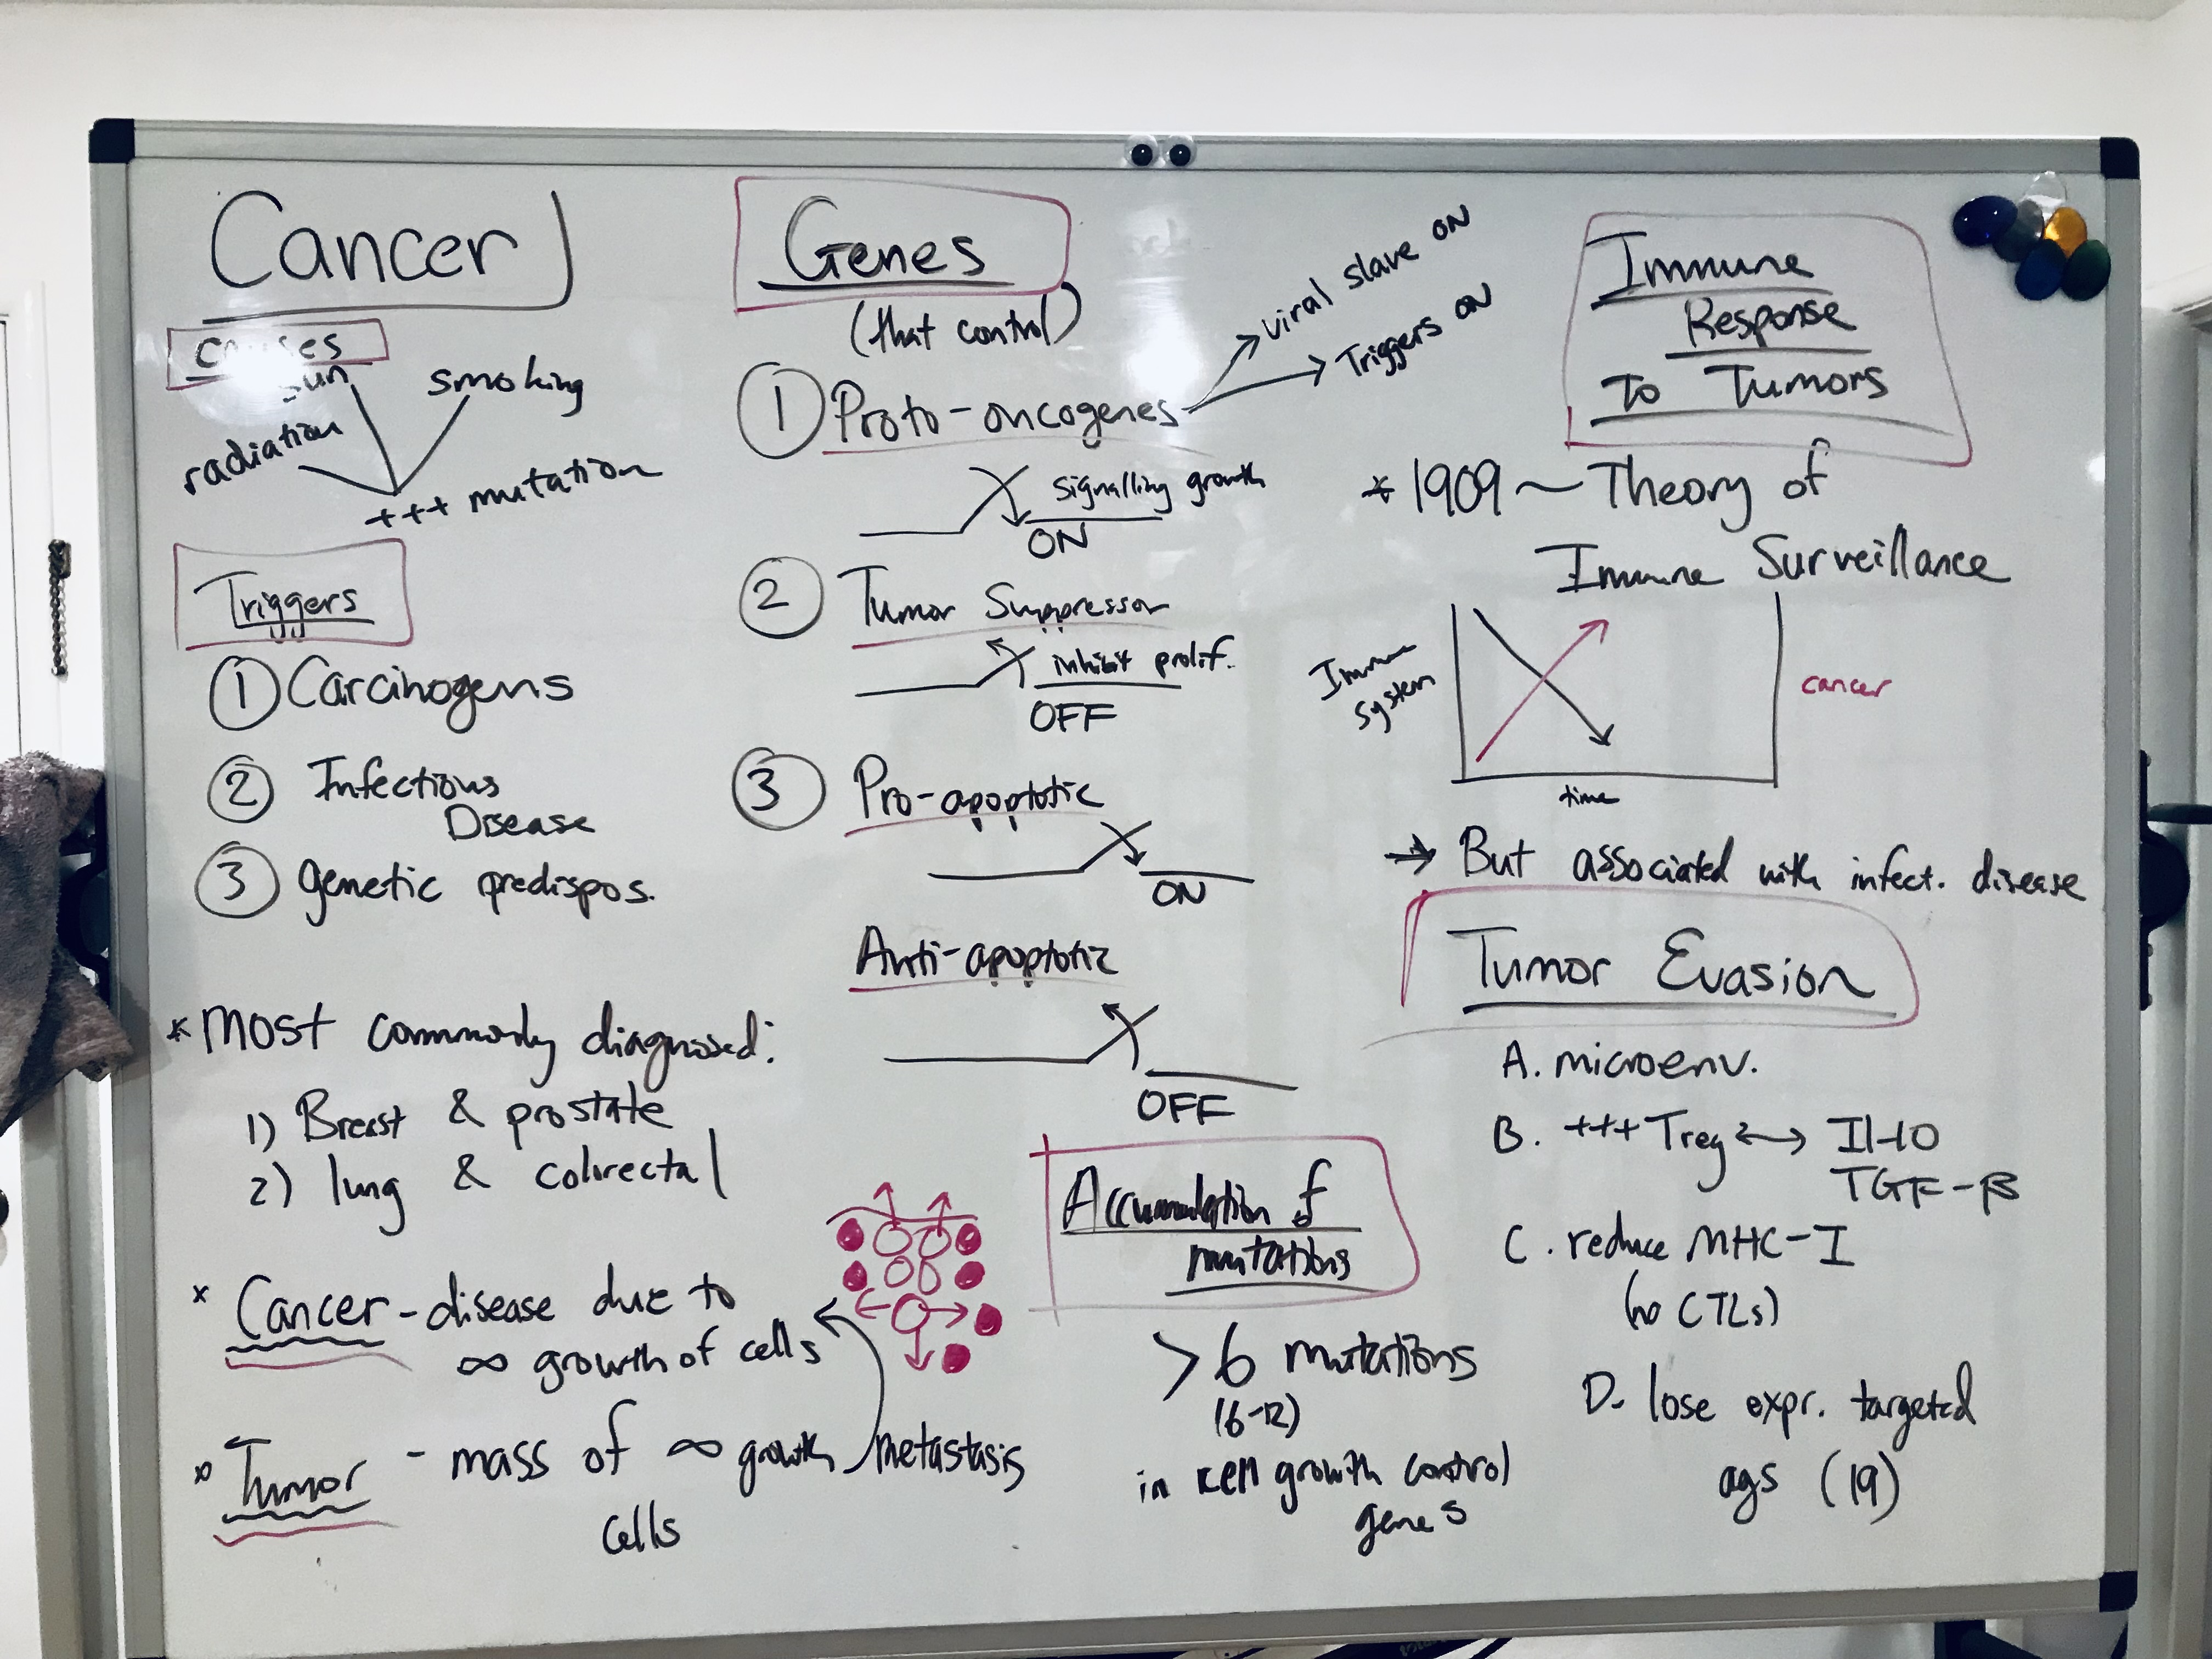 Cancer
causes
sun
smoking
radiation
+++ mutation
Triggers
① Carcinogens
② Infectious
Disease
③ genetic predispos.
* Most commonly diagnosed:
1) Breast & prostate
2) lung & colorectal
* Cancer - disease due to
∞ growth of cells
* Tumor - mass of ∞ growth
cells
metastasis
Genes
(that control)
① Proto-oncogenes
viral slave ON
Triggers ON
signalling growth
ON
② Tumor Suppressor
inhibit prolif.
OFF
③ Pro-apoptotic
ON
Anti-apoptotic
OFF
Accumulation of
mutations
>6 mutations
(6-12)
in cell growth control
genes
Immune
Response
To Tumors
* 1909 ~ Theory of
Immune Surveillance
Immune
System
cancer
time
→ But associated with infect. disease
Tumor Evasion
A. microenv.
B. +++ Treg ↔ Il-10
TGF-β
C. reduce MHC-I
(no CTLs)
D. lose expr. targeted
ags (19)